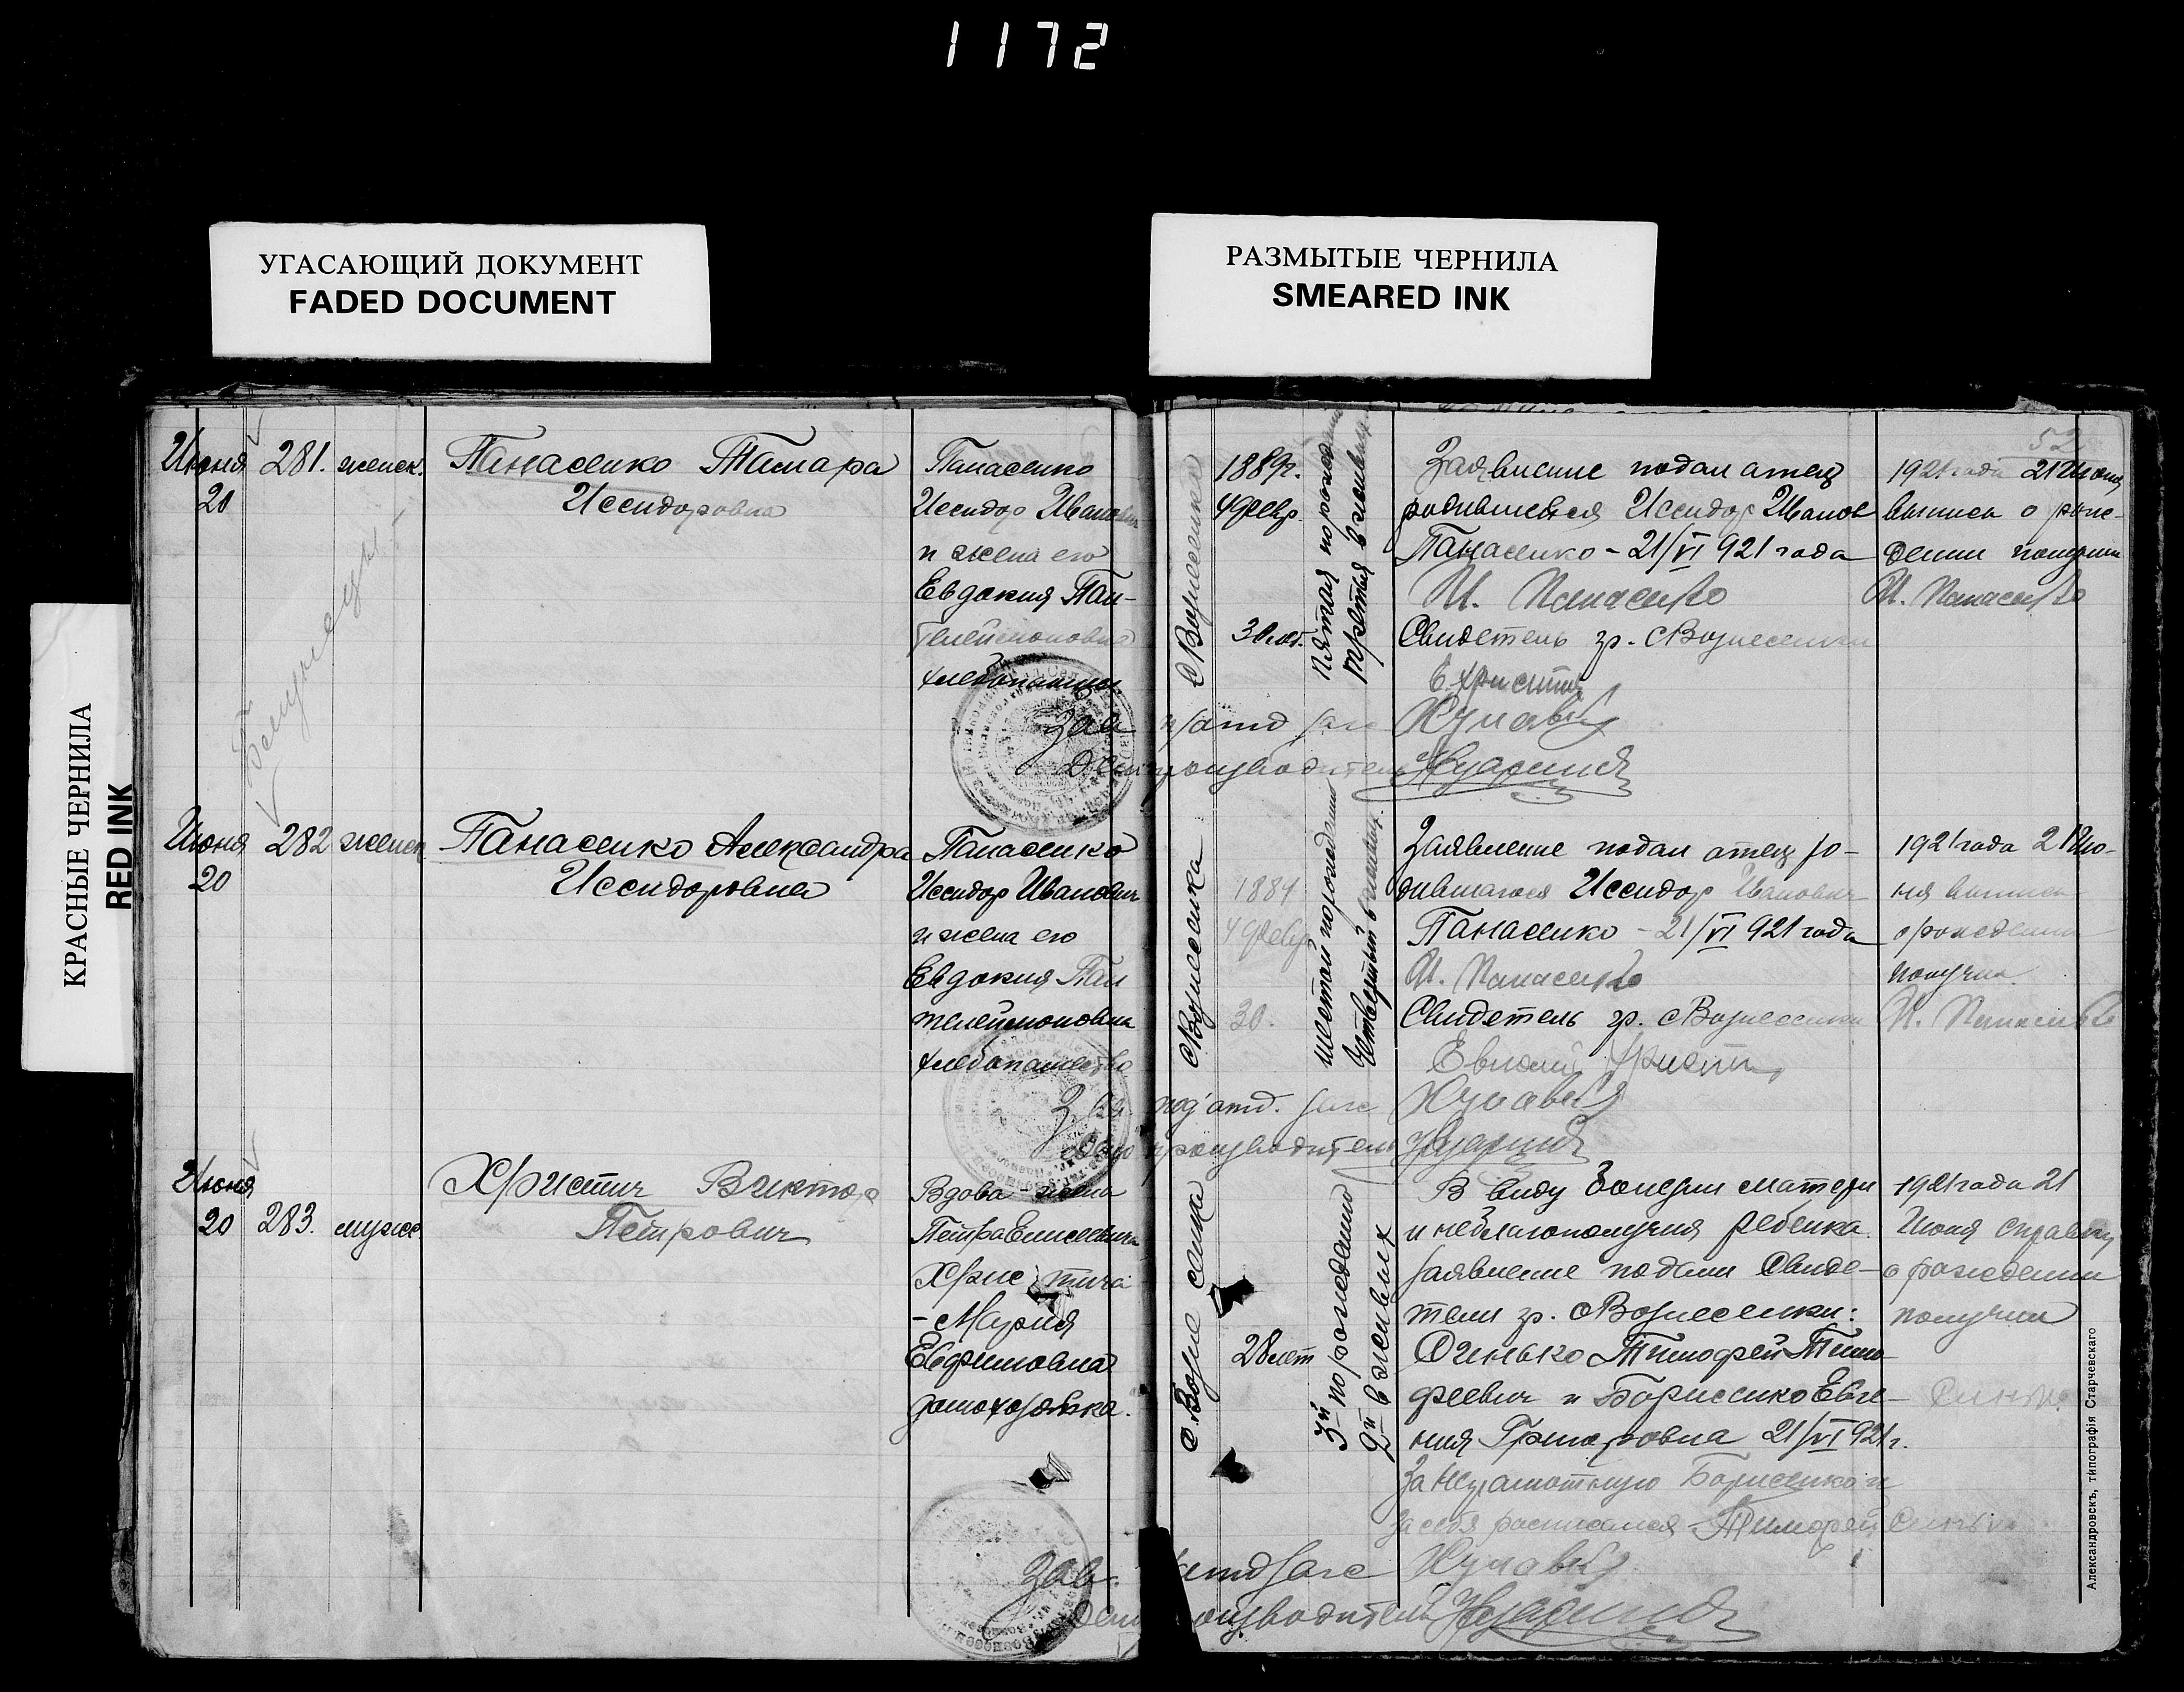 1172
УГАСАЮЩИЙ ДОКУМЕНТ
FADED DOCUMENT
РАЗМЫТЫЕ ЧЕРНИЛА
SMEARED INK
КРАСНЫЕ ЧЕРНИЛА
RED INK
52
Июня 281. женск. Панасенко Тамара
20 Иссидоровна
Панасенко
Иссидор Иванович
и жена его
Евдокия Пан-
телеймоновна
хлебопашцы
с Вознесенка
1889г.
4 февр.
30 лет.
пятая по рождению
третья в живых
Заявление подал отец
родившейся Иссидор Иванов
Панасенко - 21/VI 921 года
И. Панасенко
Свидетель гр. с Вознесенки
Е. Христич
1921 года 21 Июня
выпись о рож-
дении получил
И. Панасенко
Зав
Делопроизводитель
близнецы
Июня 282 женск Панасенко Александра
20 Иссидоровна
Панасенко
Иссидор Иванович
и жена его
Евдокия Пан
телеймоновна
хлебопашество
с Вознесенка
4 февр
30.
шестой по рождению
Четвертый в живых
Заявление подал отец ро-
дившагося Иссидор Иванович
Панасенко - 21/VI 921 года
И. Панасенко
Свидетель гр. с Вознесенки
Христич
1921 года 21 Ию-
ня выпись
о рождении
получил
И. Панасенко
Зав. под'отд.
Делопроизводитель
Июня Христич Виктор
20 283. мужс Петрович
Вдова жена
Петра Елисеевича
Христича
- Мария
Евфимовна
домохозяйка.
с. Вознесенка
28 лет
3й по рождению
2й в живых
В виду болезни матери
и неблагополучия ребенка
заявление подали Свиде-
тели гр. с Вознесенки:
Синько Тимофей Тимо
феевич и Борисенко Евге-
ния Григоровна 21/VI 921г.
За неграмотную Борисенко и
за себя расписался - Тимофей Синько
1921 года 21
Июня справку
о рождении
получил
Синько
Зав.
Делопроизводитель
Александровскъ, типографія Старчевскаго